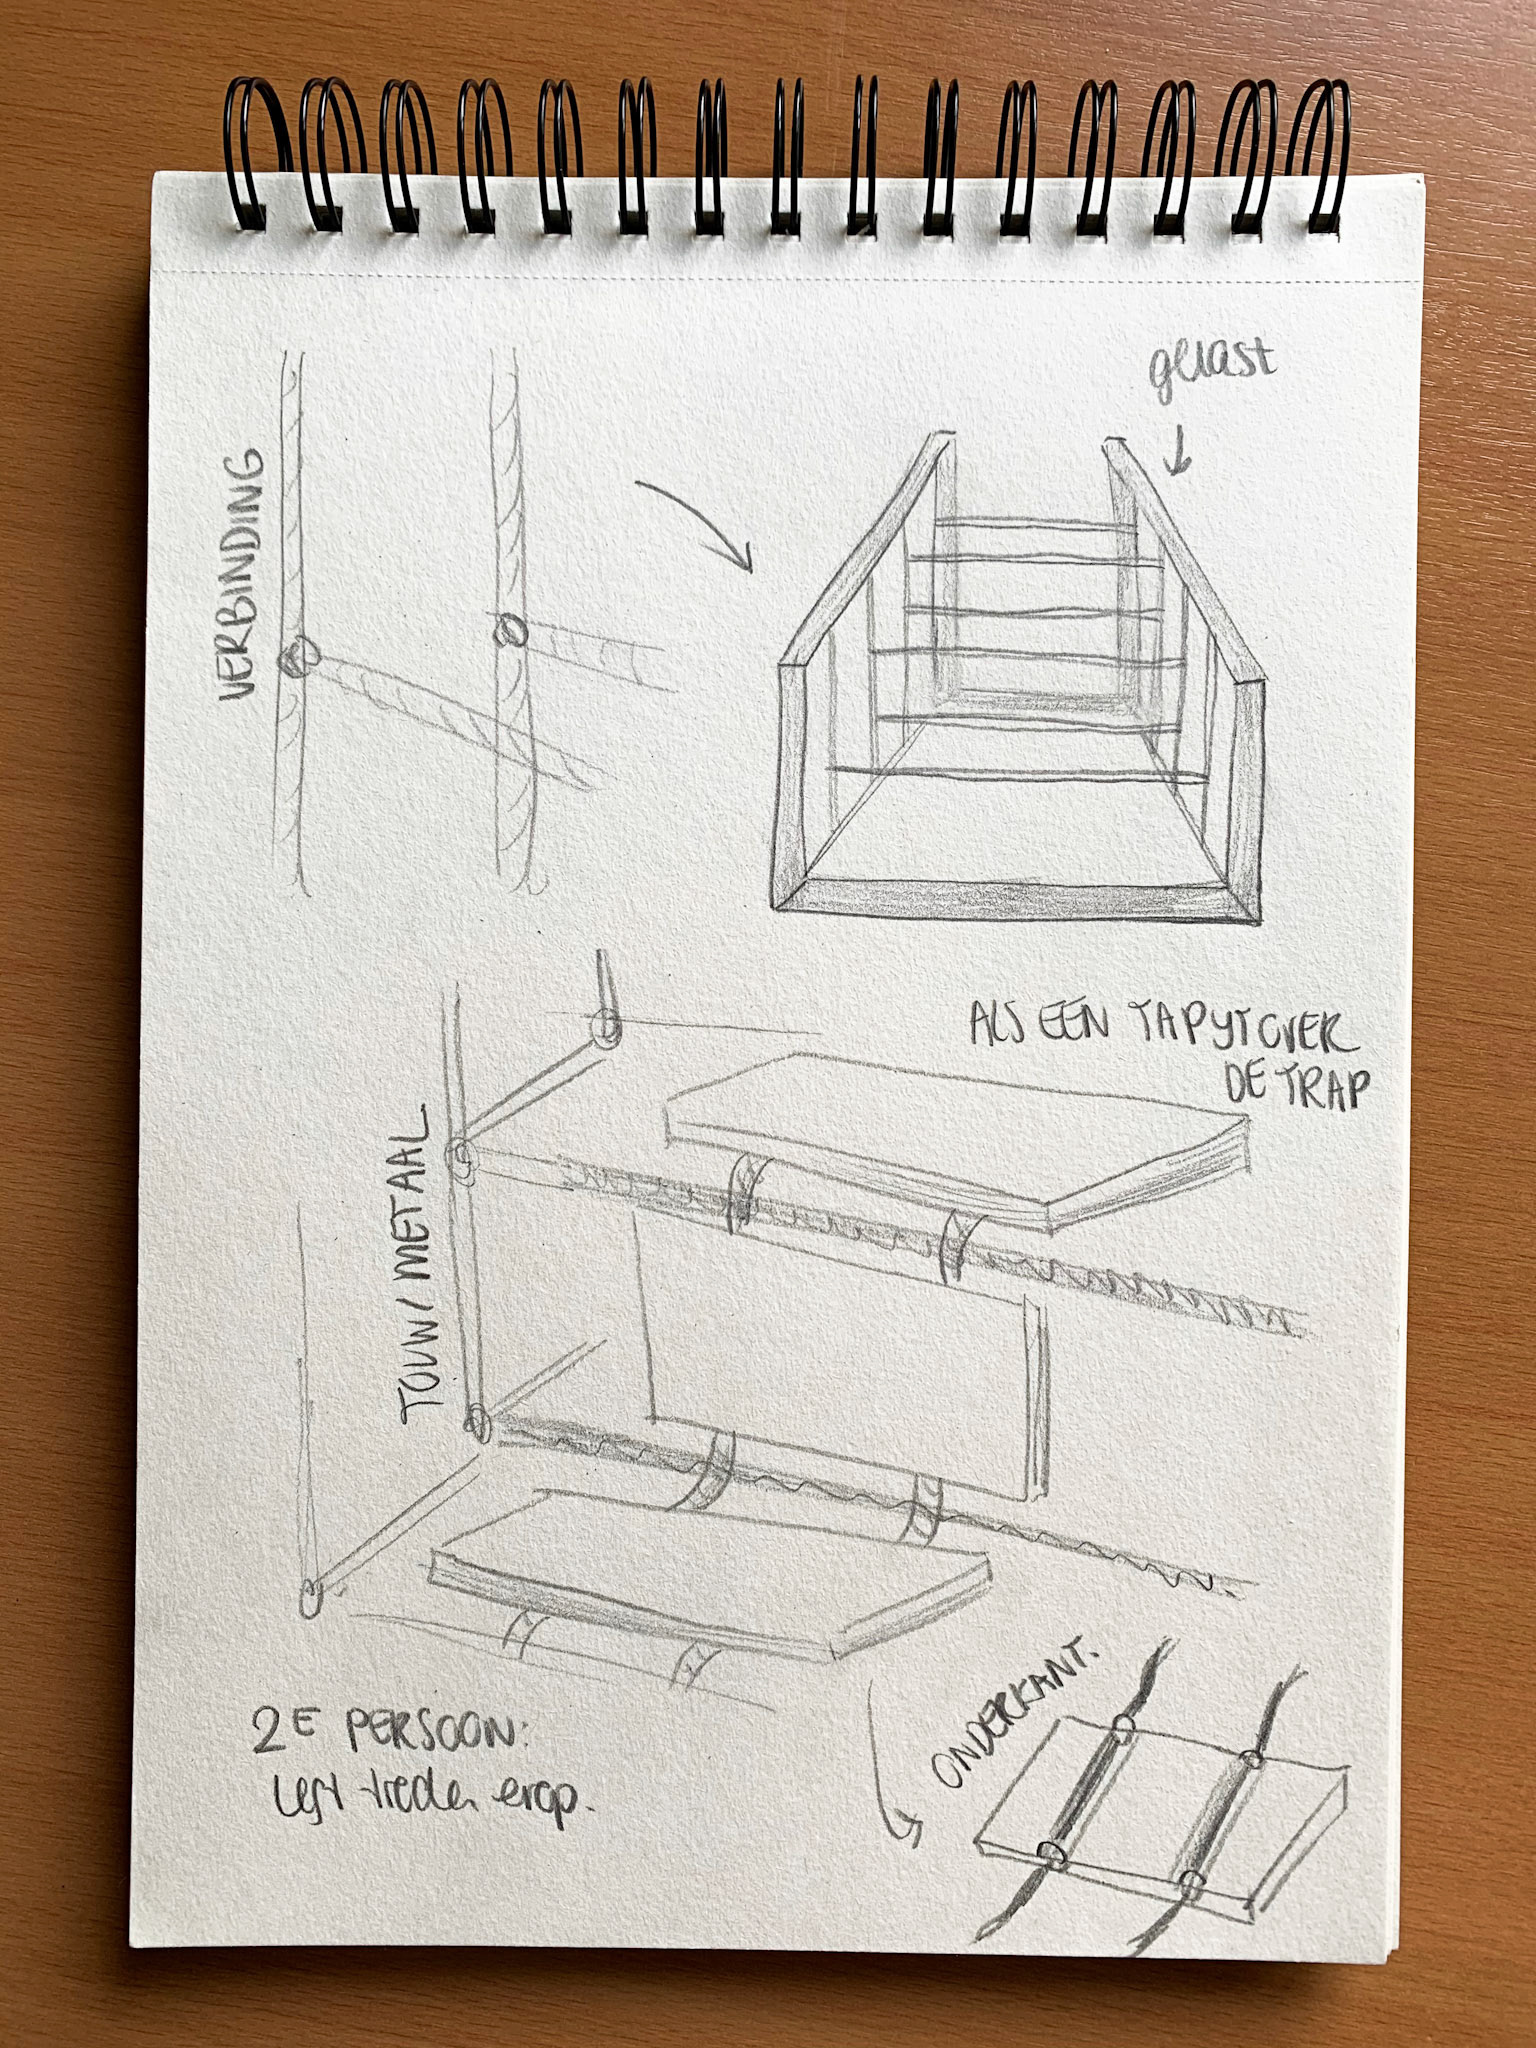 gelast
VERBINDING
ALS EEN TAPYT OVER
DE TRAP
TOUW / METAAL
ONDERKANT.
2E PERSOON:
legt treden erop.